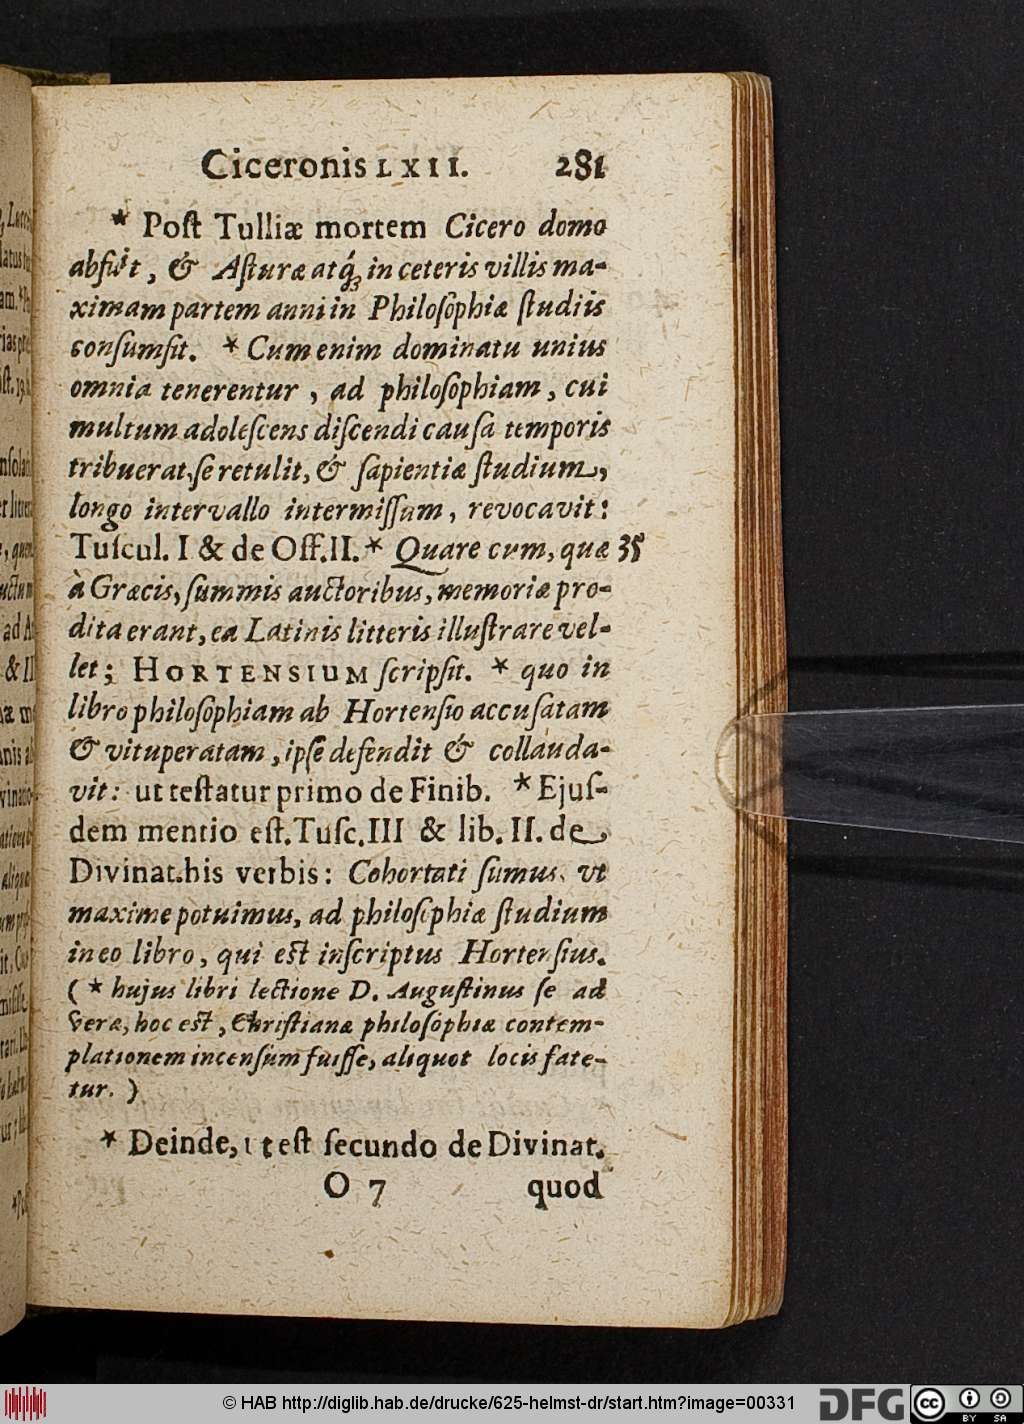 Ciceronis LXII. 281
* Poſt Tulliæ mortem Cicero domo
abfuit, & Aſturæ atq́; in ceteris villis ma-
ximam partem anni in Philoſophiæ ſtudiis
conſumſit. * Cum enim dominatu unius
omnia tenerentur, ad philoſophiam, cui
multum adoleſcens diſcendi cauſa temporis
tribuerat, ſe retulit, & ſapientiæ ſtudium,
longo intervallo intermiſſum, revocavit:
Tuſcul. I & de Off. II. * Quare cum, quæ 35
à Græcis, ſummis auctoribus, memoriæ pro-
dita erant, ea Latinis litteris illuſtrare vel-
let; HORTENSIUM ſcripſit. * quo in
libro philoſophiam ab Hortenſio accuſatam
& vituperatam, ipſe defendit & collauda-
vit: ut teſtatur primo de Finib. * Ejuſ-
dem mentio eſt. Tuſc. III & lib. II. de
Divinat. his verbis: Cohortati ſumus, ut
maxime potuimus, ad philoſophiæ ſtudium
in eo libro, qui eſt inſcriptus Hortenſius.
(* hujus libri lectione D. Auguſtinus ſe ad
veræ, hoc eſt, Chriſtianæ philoſophiæ contem-
plationem incenſum fuiſſe, aliquot locis fate-
tur. )
* Deinde, ut eſt ſecundo de Divinat.
O 7 quod
© HAB http://diglib.hab.de/drucke/625-helmst-dr/start.htm?image=00331
DFG
cc BY SA